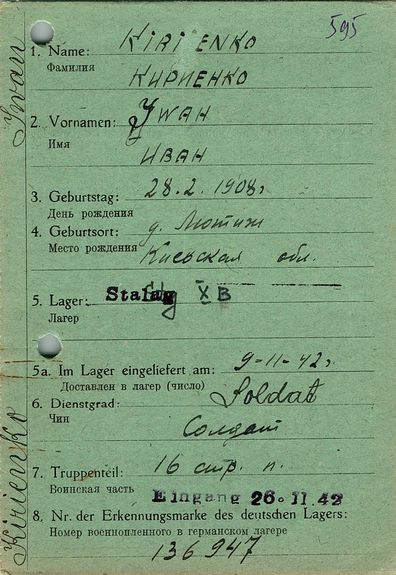 595
1. Name: KIRIENKO
Фамилия
КИРИЕНКО
2. Vornamen: JWAH
Имя
ИВАН
3. Geburtstag: 28.2.1908г
День рождения
4. Geburtsort: д. Лютиж
Место рождения Киевская обл.
5. Lager: Stalag X B
Лагер
5a. Im Lager eingeliefert am: 9-11-42г
Доставлен в лагер (число)
6. Dienstgrad: Soldat
Чин
Солдат
7. Truppenteil: 16 стр. п.
Воинская часть
Eingang 26.11.42
8. Nr. der Erkennungsmarke des deutschen Lagers:
Номер военнопленного в германском лагере
136947
Kirienko Iwan